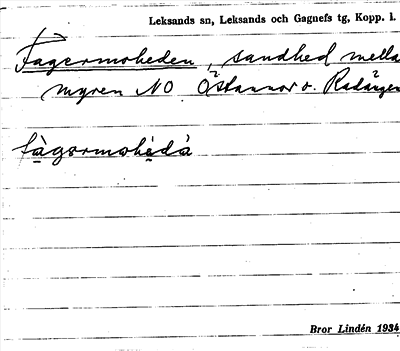 Leksands sn, Leksands och Gagnefs tg, Kopp. l.
Fagermoheden, sandhed mella
myren NO Östannor o. Radängen
fàgormohèdà
Bror Lindén 1934